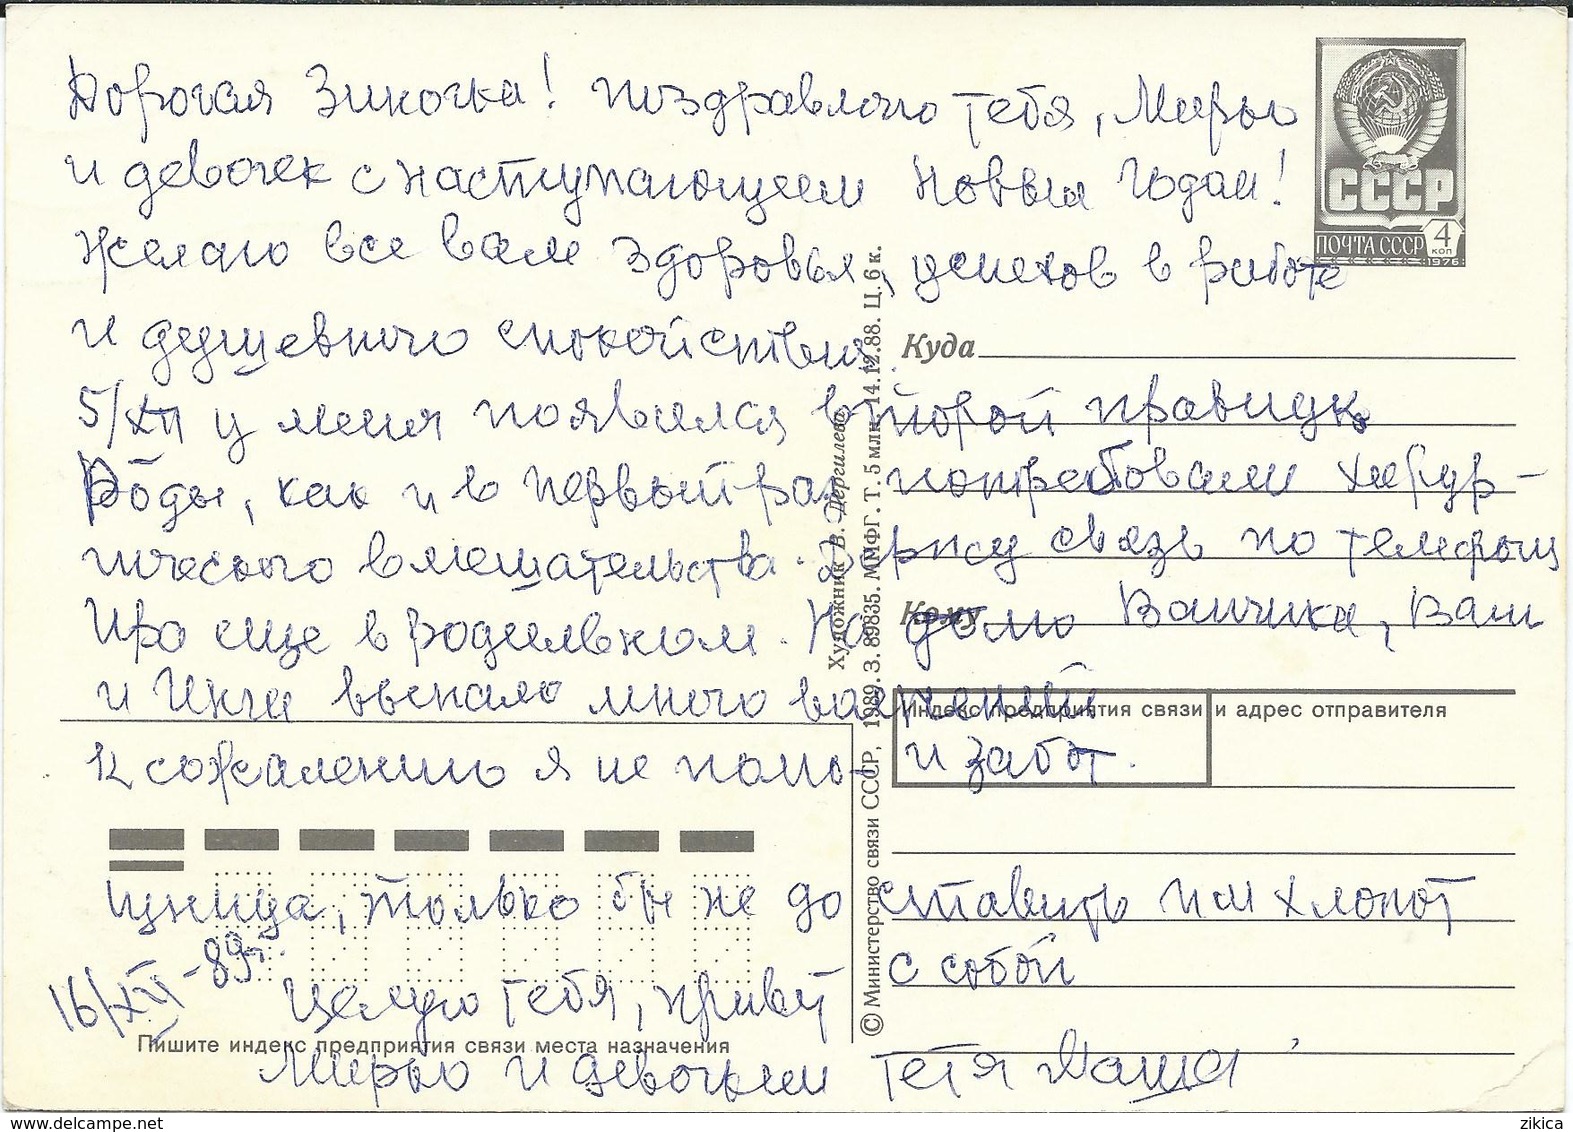 Дорогая Зиночка! Поздравляю тебя, Мирью
и девочек с наступающим Новым Годом!
Желаю все вам здоровья, успехов в работе
и душевного спокойствия.
5/XII у меня появился второй правнук.
Роды, как и в первый раз потребовали хирур-
гического вмешательства. Держу связь по телефону
Ира еще в родильном. На долю Ванчика, Вали
и Инги выпало много волнений
и забот.
К сожалению я не помо-
щница, только бы не доставить им хлопот
с собой
16/XII-89г.
Целую тебя, привет
Мирью и девочкам Тетя Маша
СССР
ПОЧТА СССР 4 коп
1976
Куда
Кому
Индекс предприятия связи и адрес отправителя
Пишите индекс предприятия связи места назначения
Художник В. Дергилева
© Министерство связи СССР, 1989. З. 89835. ММФГ. Т. 5 млн. 14.12.88. Ц. 6 к.
delcampe.net
zikica